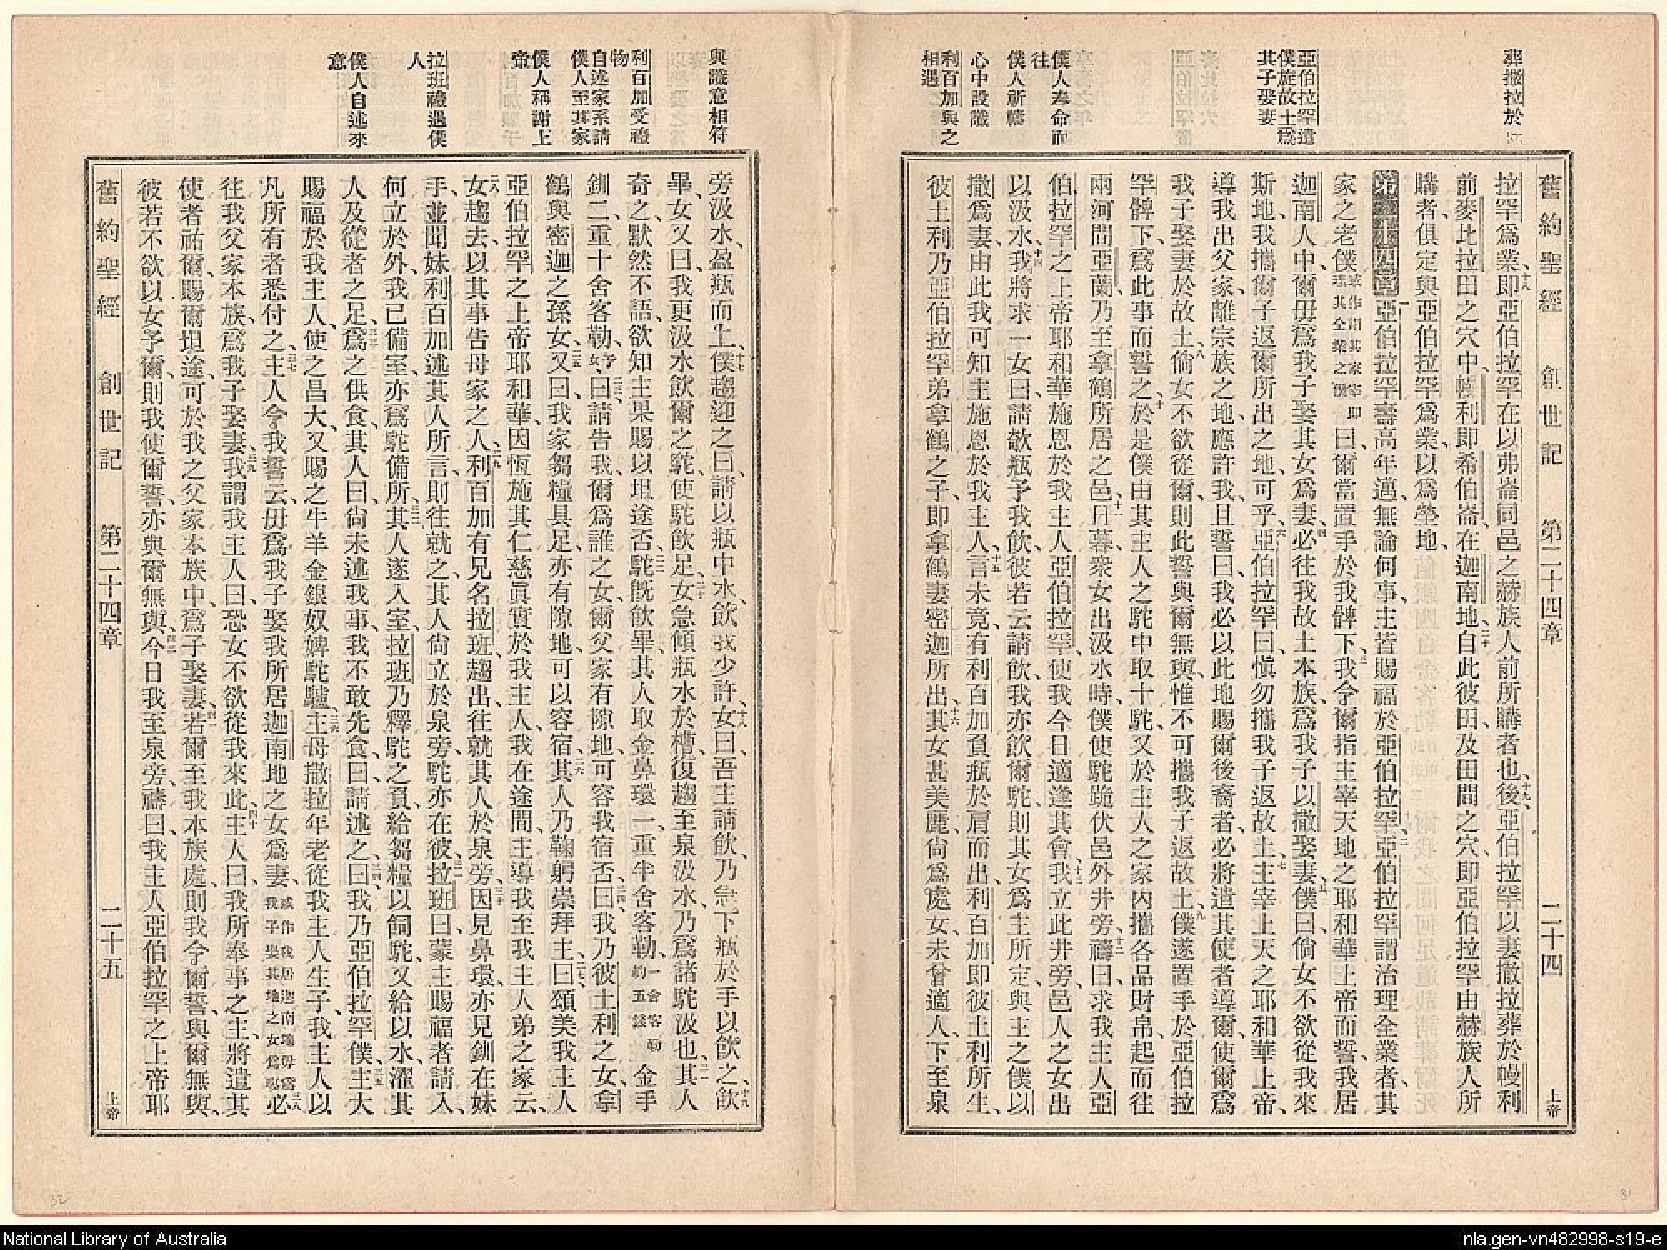 葬撒拉於
亞伯拉罕遣
僕旋故土爲
其子娶妻
僕人奉命而
往
僕人祈禱
心中設讖
利百加與之
相遇
舊約聖經 創世記 第二十四章 二十四 上帝
拉罕爲業、十八即亞伯拉罕在以弗崙同邑之赫族人前所購者也、十九後亞伯拉罕以妻撒拉葬於幔利
前麥比拉田之穴中、幔利即希伯崙、在迦南地、二十自此彼田、及田間之穴、即亞伯拉罕由赫族人所
購者、俱定與亞伯拉罕爲業、以爲塋地、
第二十四章 一亞伯拉罕壽高年邁、無論何事、主皆賜福於亞伯拉罕、二亞伯拉罕謂治理全業者、其
家之老僕曰、爾當置手於我髀下、三我令爾指主宰天地之耶和華上帝而誓、我居
迦南人中、爾毋爲我子娶其女爲妻、四必往我故土本族、爲我子以撒娶妻、五僕曰、倘女不欲從我來
斯地、我攜爾子返爾所出之地、可乎、六亞伯拉罕曰、愼勿攜我子返故土、七主宰上天之耶和華上帝、
導我出父家、離宗族之地、應許我、且誓曰、我必以此地賜爾後裔者、必將遣其使者導爾、使爾爲
我子娶妻於故土、八倘女不欲從爾、則此誓與爾無與、惟不可攜我子返故土、九僕遂置手於亞伯拉
罕髀下、爲此事而誓之、十於是僕由其主人之駝中取十駝、又於主人之家內、攜各品財帛、起而往
兩河間亞蘭、乃至拿鶴所居之邑、十一日暮、衆女出汲水時、僕使駝跪伏邑外井旁、十二禱曰、求我主人亞
伯拉罕之上帝耶和華、施恩於我主人亞伯拉罕、使我今日適逢其會、十三我立此井旁、邑人之女出
以汲水、十四我將求一女曰、請欹瓶予我飲、彼若云、請飲、我亦飲爾駝、則其女爲主所定、與主之僕以
撒爲妻、由此我可知主施恩於我主人、十五言未竟、有利百加負瓶於肩而出、利百加即彼土利所生、
彼土利乃亞伯拉罕弟拿鶴之子、即拿鶴妻密迦所出、十六其女甚美麗、尙爲處女、未曾適人、下至泉
與讖意相符
利百加受禮
物
自述家系請
僕人至其家
僕人稱謝上
帝
拉班禮遇僕
人
僕人自述來
意
旁汲水、盈瓶而上、十七僕趨迎之曰、請以瓶中水、飲我少許、十八女曰、吾主請飲、乃急下瓶於手以飲之、十九飲
畢、女又曰、我更汲水飲爾之駝、使駝飲足、二十女急傾瓶水於槽、復趨至泉汲水、乃爲諸駝汲也、二一其人
奇之、默然不語、欲知主果賜以坦途否、二二駝旣飲畢、其人取金鼻環一、重半舍客勒、一舍客勒約五錢金手
釧二、重十舍客勒、予女、二三曰、請告我、爾爲誰之女、爾父家有隙地可容我宿否、二四曰、我乃彼土利之女、拿
鶴與密迦之孫女、二五又曰、我家芻糧具足、亦有隙地、可以容宿、二六其人乃鞠躬崇拜主、二七曰、頌美我主人
亞伯拉罕之上帝耶和華、因恆施其仁慈眞實於我主人、我在途間、主導我至我主人弟之家云、
二八女趨去、以其事告母家之人、二九利百加有兄名拉班、趨出、往就其人於泉旁、三十因見鼻環、亦見釧在妹
手、並聞妹利百加述其人所言、則往就之、其人尙立於泉旁、駝亦在彼、三一拉班曰、蒙主賜福者請入、
何立於外、我已備室、亦爲駝備所、三二其人遂入室、拉班乃釋駝之負、給芻糧以飼駝、又給以水濯其
人及從者之足、三三爲之供食、其人曰、尙未述我事、我不敢先食、曰、請述之、三四曰、我乃亞伯拉罕僕、三五主大
賜福於我主人、使之昌大、又賜之牛羊金銀奴婢駝驢、三六主母撒拉年老、從我主人生子、我主人以
凡所有者悉付之、三七主人令我誓云、毋爲我子娶我所居迦南地之女爲妻、三八必
往我父家本族、爲我子娶妻、三九我謂我主人曰、恐女不欲從我來此、四十主人曰、我所奉事之主、將遣其
使者祐爾、賜爾坦途、可於我之父家本族中、爲子娶妻、四一若爾至我本族處、則我令爾誓、與爾無與、
彼若不欲以女予爾、則我使爾誓、亦與爾無與、四二今日我至泉旁、禱曰、我主人亞伯拉罕之上帝耶
舊約聖經 創世記 第二十四章 二十五 上帝
32
31
National Library of Australia
nla.gen-vn482998-s19-e